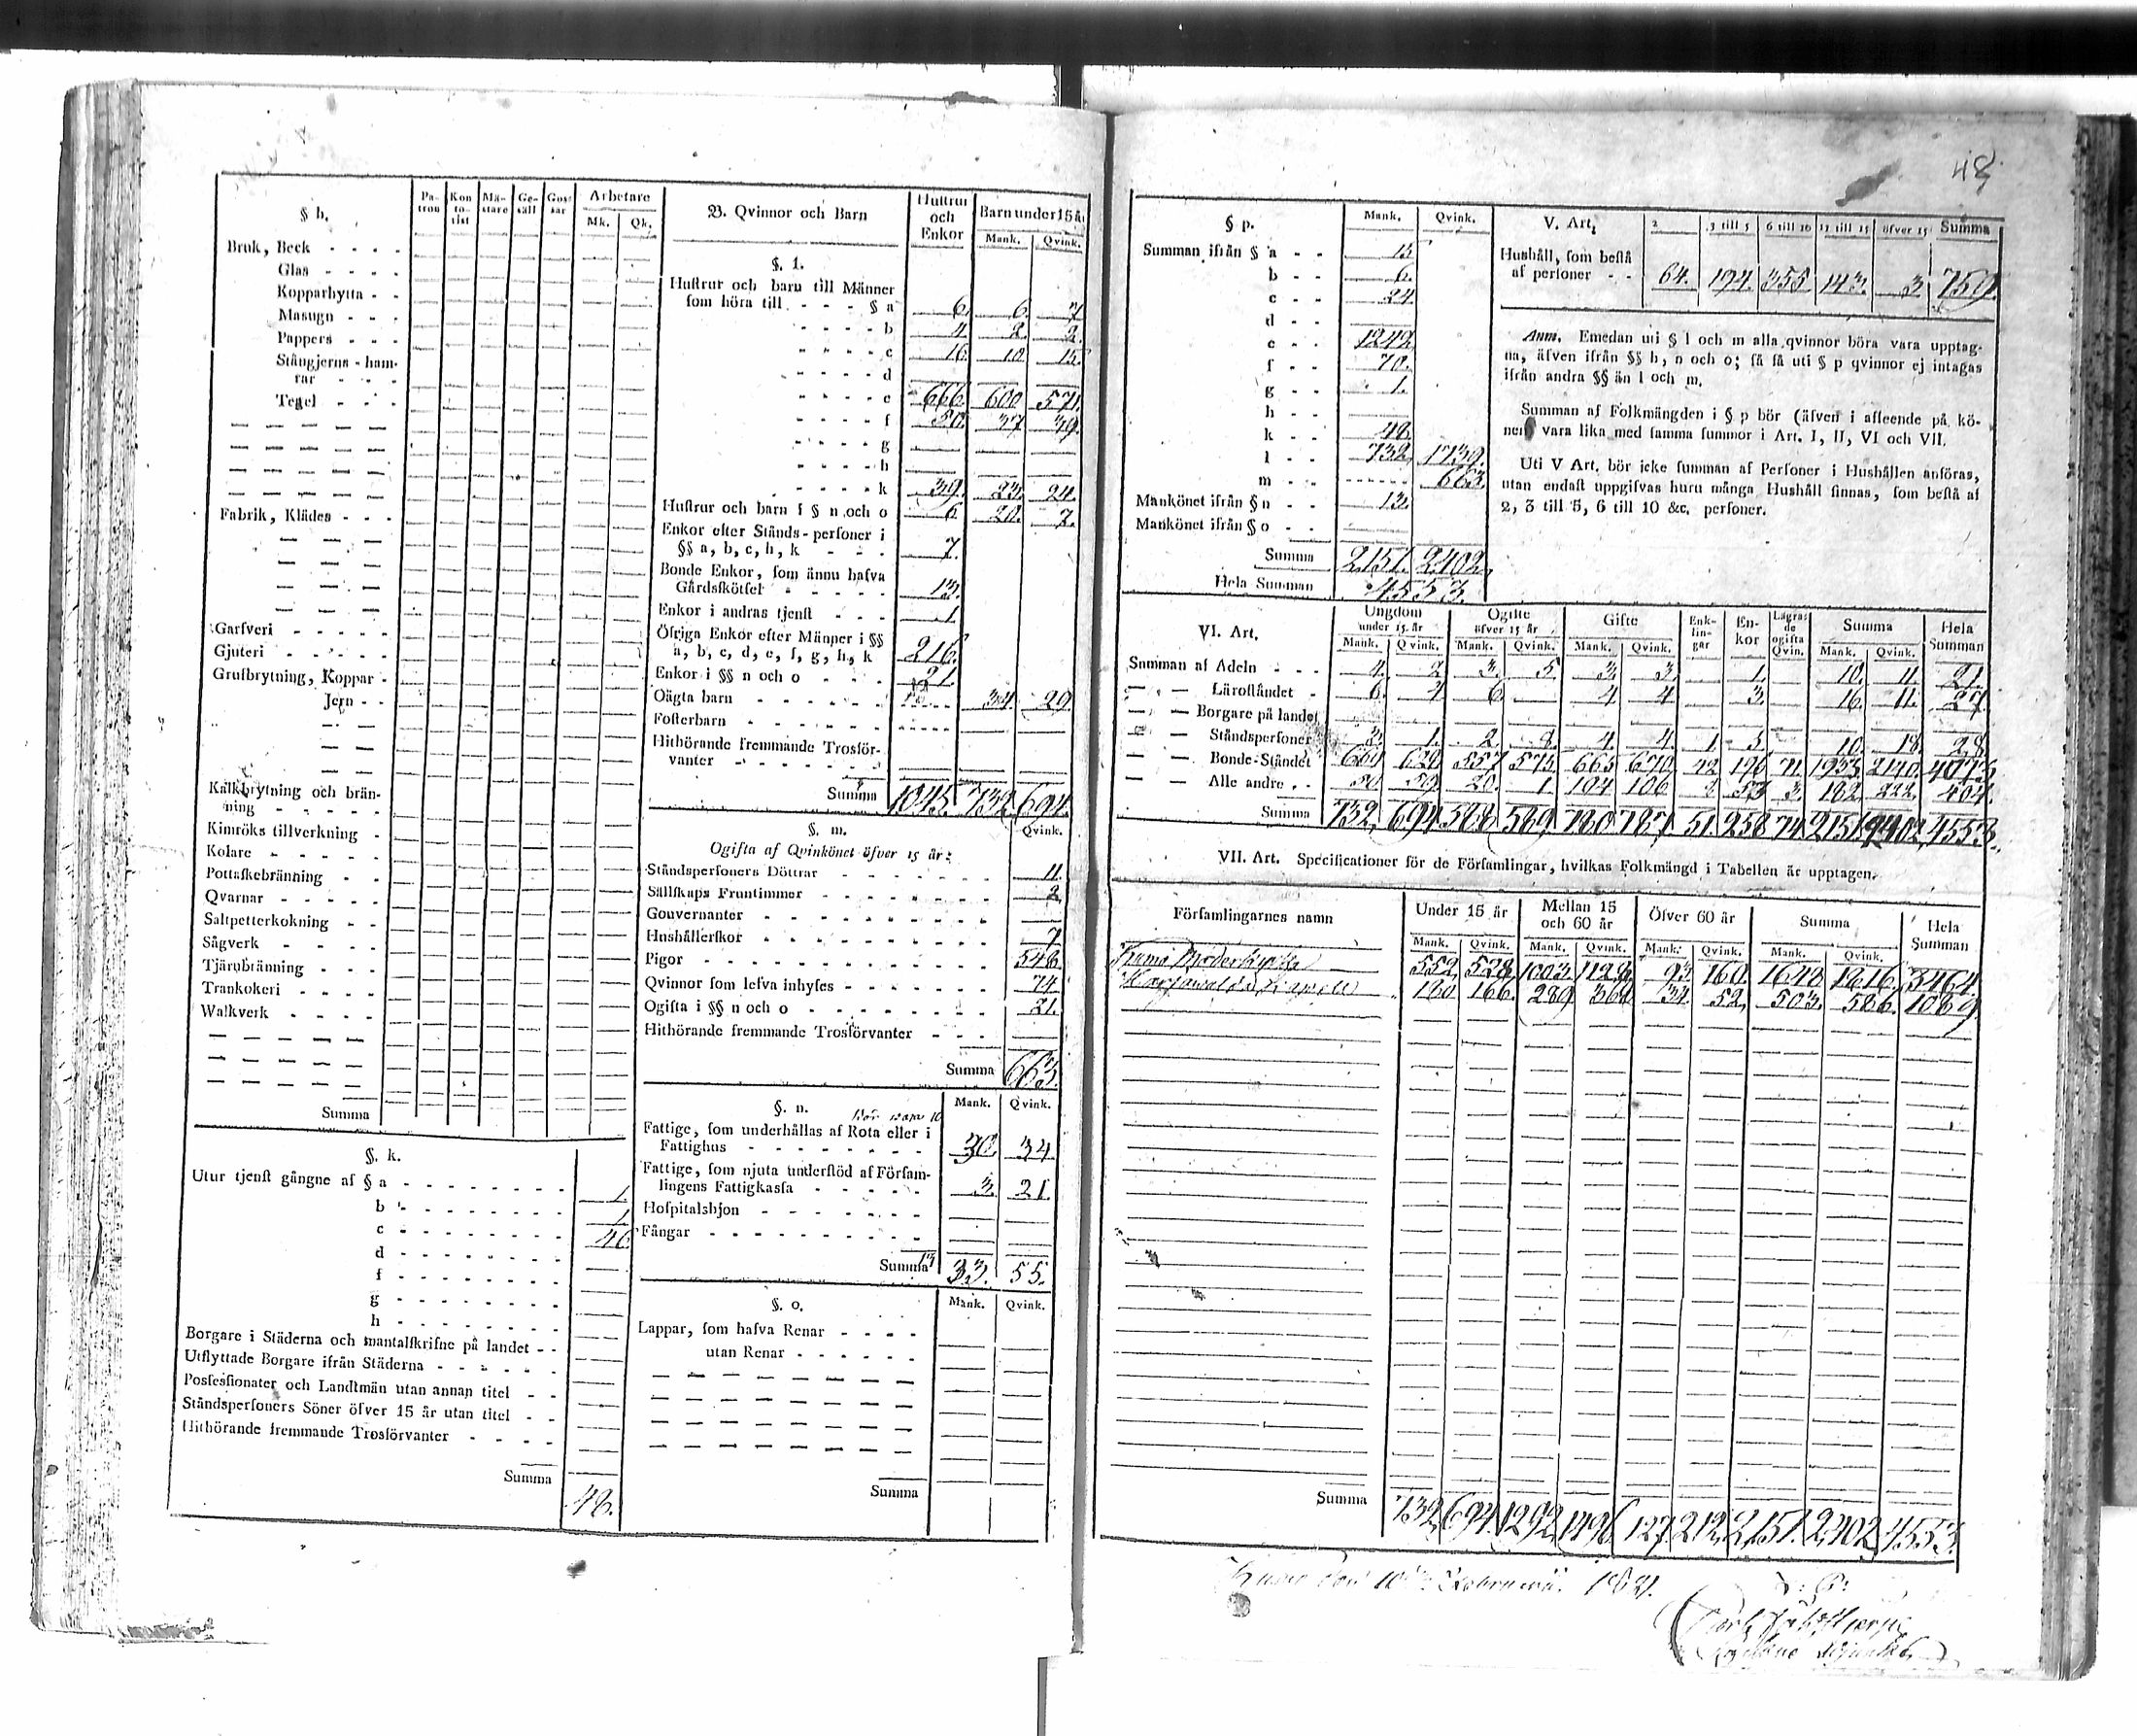 § h.
Pa- tron
Kon to- rist
Mä- stare
Ge- säll
Gos- sar
Arbetare
Mk. Qk.
Bruk, Beck
Glas
Kopparhytta
Masugn
Pappers
Stångjerns-ham-
rar
Tegel
Fabrik, Klädes
Garfveri
Gjuteri
Grufbrytning, Koppar
Jern
Kalkbrytning och brän-
ning
Kimröks tillverkning
Kolare
Pottaskebränning
Qvarnar
Saltpetterkokning
Sågverk
Tjärubränning
Trankokeri
Walkverk
Summa
§. k.
Utur tjenst gångne af § a 1.
b 1.
c 46
d
f
g
h
Borgare i Städerna och mantalskrifne på landet
Utflyttade Borgare ifrån Städerna
Possessionater och Landtmän utan annan titel
Ståndspersoners Söner öfver 15 år utan titel
Hithörande fremmande Trosförvanter
Summa 48.
B. Qvinnor och Barn
Hustrur och Enkor
Barn under 15 år
Mank. Qvink.
§. l.
Hustrur och barn till Männer
som höra till § a 6. 6. 7
b 4. 2. 2.
c 16. 10. 15.
d
e 666. 600 571.
f 50. 37 39.
g
h
k 39. 23. 24.
Hustrur och barn i § n och o 6. 20. 7.
Enkor efter Stånds-personer i
§§ a, b, c, h, k 7.
Bonde Enkor, som ännu hafva
Gårdsskötsel 13.
Enkor i andras tjenst 1.
Öfriga Enkor efter Männer i §§
a, b, c, d, e, f, g, h, k 216.
Enkor i §§ n och o 21.
Oägta barn 34. 29.
Fosterbarn
Hithörande fremmande Trosför-
vanter
Summa 1045. 732. 694.
§. m. Qvink.
Ogifta af Qvinkönet öfver 15 år:
Ståndspersoners Döttrar 11.
Sällskaps Fruntimmer 2
Gouvernanter
Hushållerskor 7
Pigor 548.
Qvinnor som lefva inhyses 74.
Ogifta i §§ n och o 21.
Hithörande fremmande Trosförvanter
Summa 663.
§. n. Mank. Qvink.
Fattige, som underhållas af Rota eller i
Fattighus 30. 34.
Fattige, som njuta understöd af Försam-
lingens Fattigkassa 3. 21.
Hospitalshjon
Fångar
Summa 13 33. 55.
§. o. Mank. Qvink.
Lappar, som hafva Renar
utan Renar
Summa
48
§ p. Mank. Qvink.
Summan ifrån § a 15
b 6.
c 24
d
e 1242
f 70.
g 1.
h
k 48.
l 732. 1739.
m 663.
Mankönet ifrån § n 13.
Mankönet ifrån § o
Summa 2151. 2402.
Hela Summan 4553.
V. Art. 2 3 till 5 6 till 10 11 till 15 öfver 15 Summa
Hushåll, som bestå
af personer 64. 194. 355 143. 3 759.
Anm. Emedan uti § l och m alla qvinnor böra vara upptag-
na, äfven ifrån §§ h, n och o; så få uti § p qvinnor ej intagas
ifrån andra §§ än l och m.
Summan af Folkmängden i § p bör (äfven i afseende på kö-
nen vara lika med samma summor i Art. I, II, VI och VII.
Uti V Art. bör icke summan af Personer i Hushållen anföras,
utan endast uppgifvas huru många Hushåll finnas, som bestå af
2, 3 till 5, 6 till 10 &c. personer.
VI. Art.
Ungdom under 15 år
Ogifte öfver 15 år
Gifte
Enk- lin- gar
En- kor
Lägras de ogifta Qvin.
Summa
Hela Summan
Mank. Qvink. Mank. Qvink. Mank. Qvink. Mank. Qvink.
Summan af Adeln 4. 2 3. 5 3. 3. 1. 10. 11. 21.
Läroståndet 6. 4 6. 4 4 3. 16. 11. 27
Borgare på landet
Ståndspersoner 3. 1. 2. 4. 4. 1. 3. 10. 18. 28
Bonde-Ståndet 629. 557 574. 665 670. 42 71. 1933. 2140. 4073
Alle andre 20. 1. 104 106. 2. 53 3. 182. 222. 404.
Summa 732. 694. 588 589 780 787 51. 258 74. 2151 2402. 4553.
VII. Art. Specificationer för de Församlingar, hvilkas Folkmängd i Tabellen är upptagen.
Församlingarnes namn
Under 15 år
Mellan 15 och 60 år
Öfver 60 år
Summa
Hela Summan
Mank. Qvink. Mank. Qvink. Mank. Qvink. Mank. Qvink.
Kumo Moderkyrka 552. 528. 1003. 1128. 93. 160. 1648 1816. 3464.
Harjawalda Kapell 180 166. 289 368 34. 52. 503. 586. 1089
Summa 732. 694. 1292. 1496. 127. 212. 2,151. 2,402. 4553.
Kumo den 10 Februarii 1831.